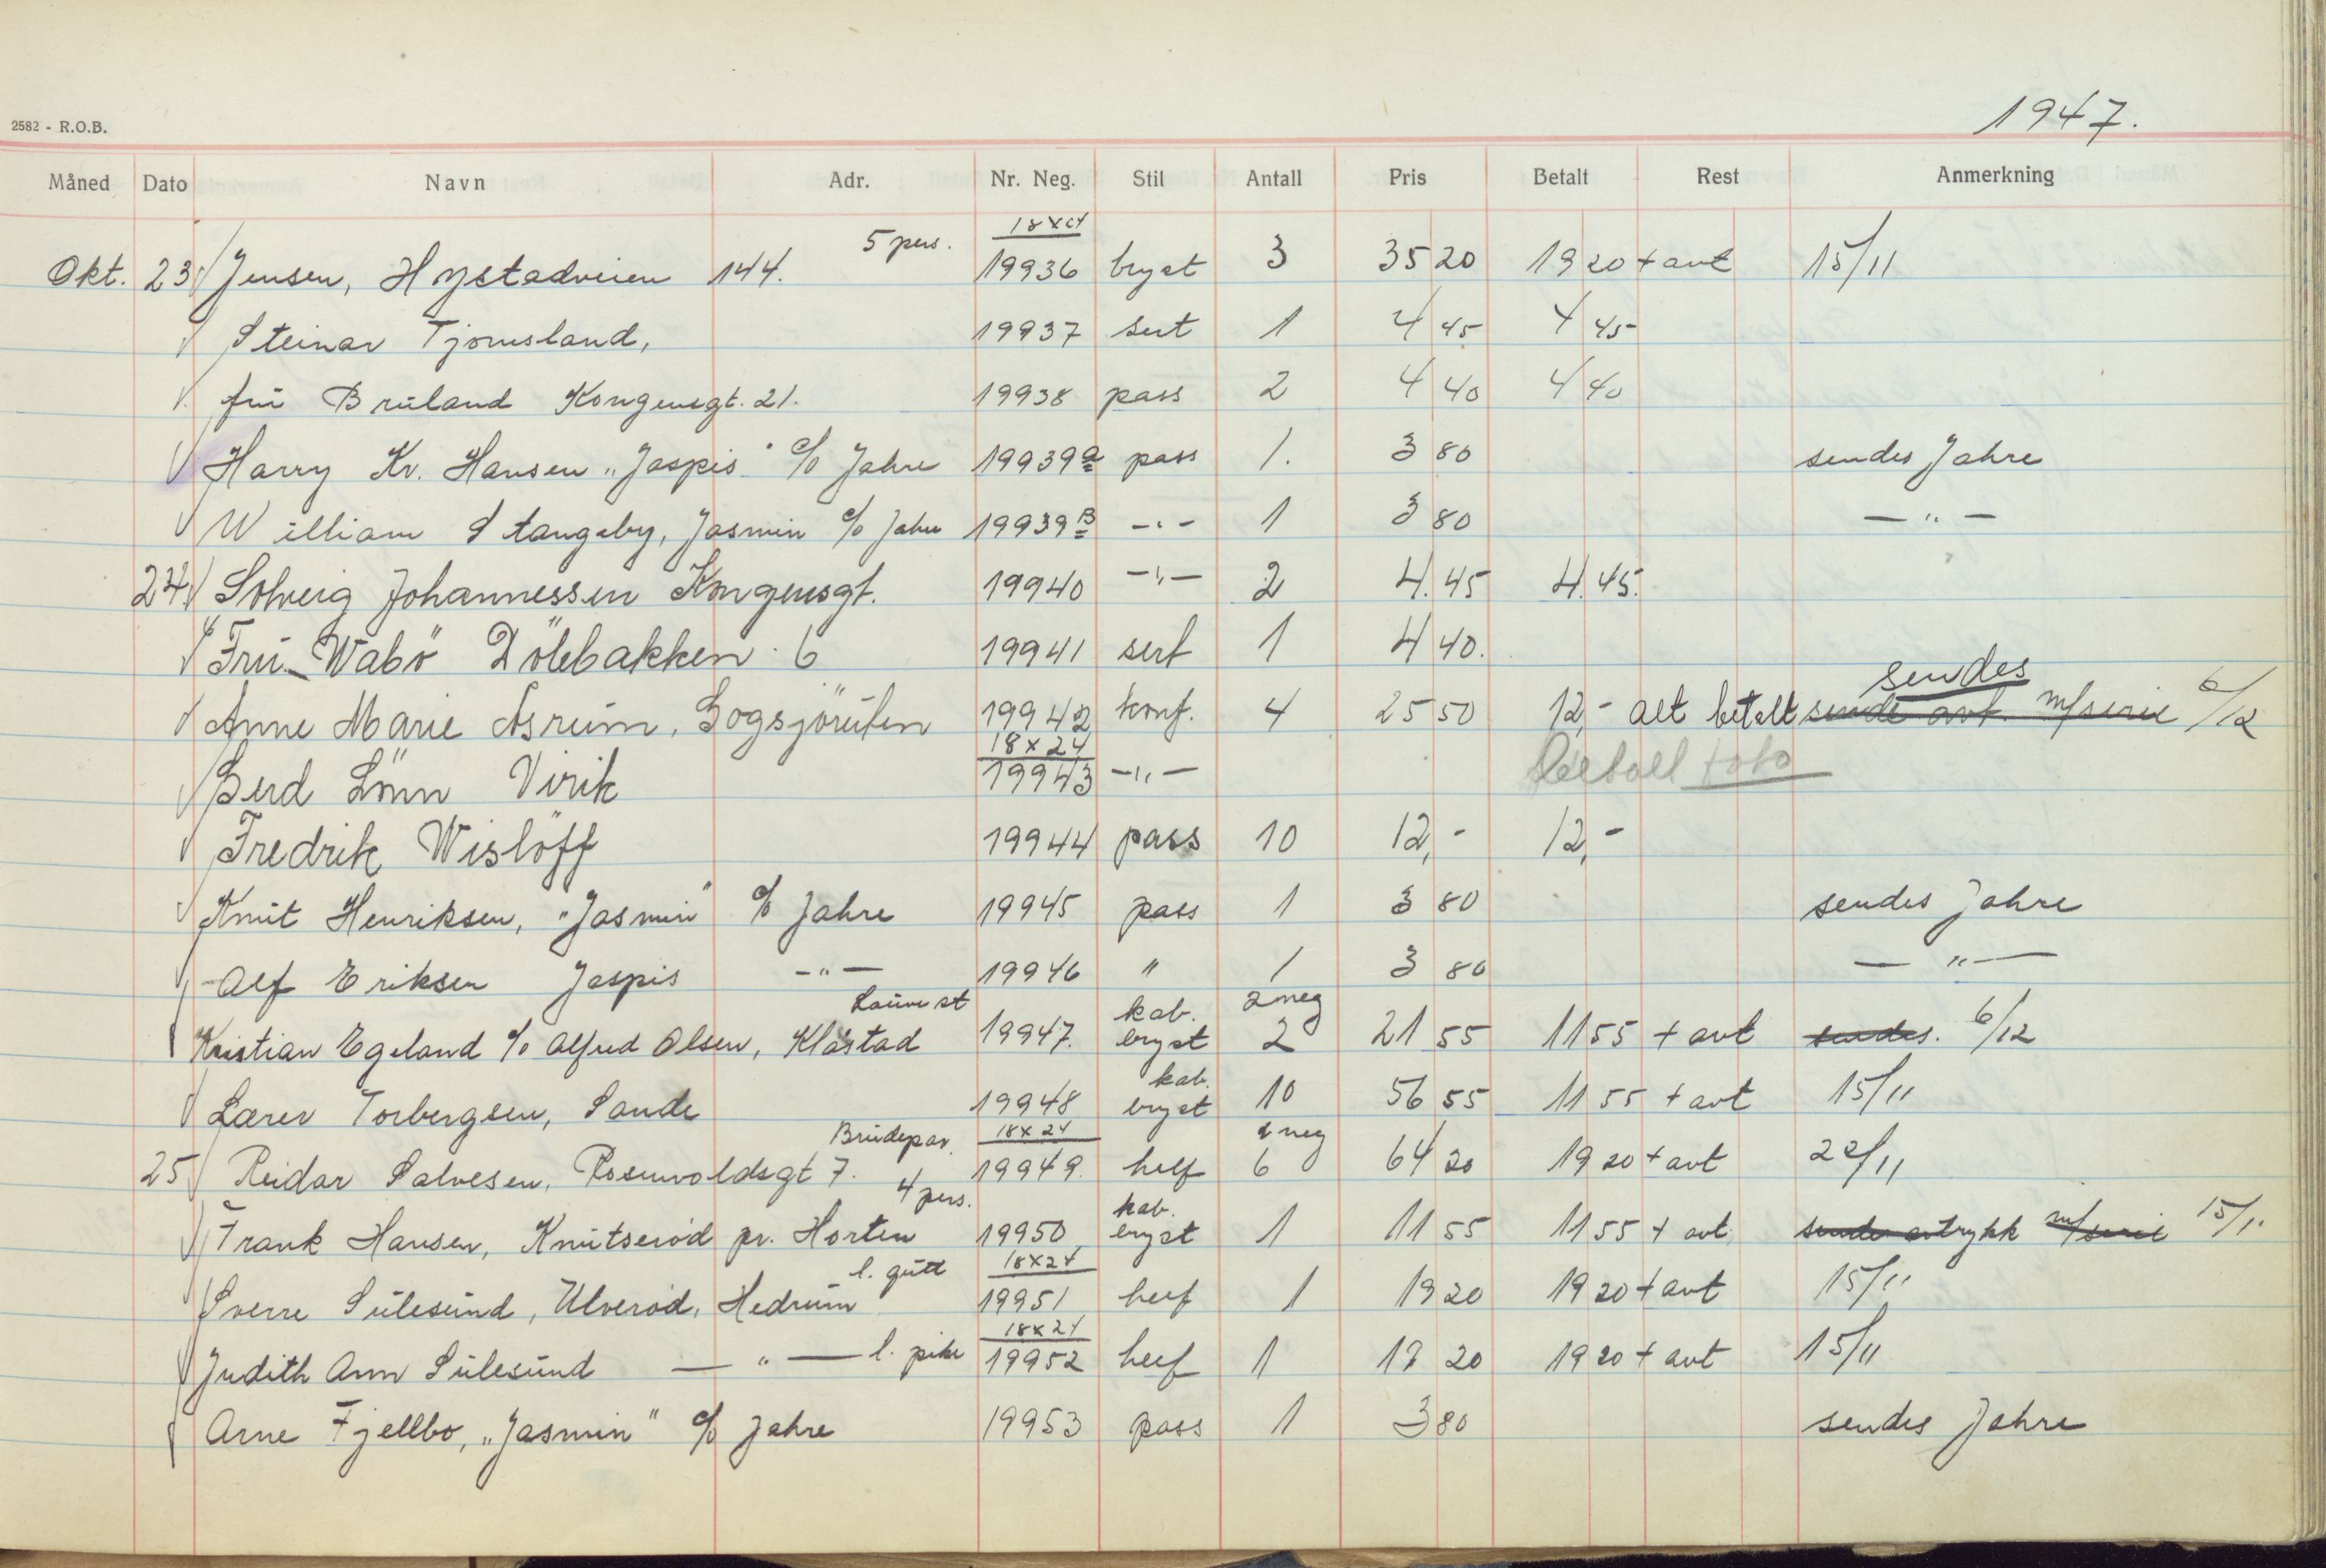 2582 - R.O.B.
1947.
Måned Dato Navn Adr. Nr. Neg. Stil Antall Pris Betalt Rest Anmerkning
Okt. 23 Jensen, Hystadveien 144. 5 pers. 18x24 19936 bryst 3 35 20 19 20 + avt 15/11
Steinar Tjomsland, 19937 sert 1 4 45 4 45
fru Bruland Kongensgt. 21. 19938 pass 2 4 40 4 40
Harry Kr. Hansen "Jaspis" c/o Jahre 19939a pass 1. 3 80 sendes Jahre
William Stangeby, Jasmin c/o Jahre 19939B -"- 1 3 80 -"-
24. Solveig Johannessen Kongensgt. 19940 -"- 2 4. 45 4. 45.
Fru Wabö Dölebakken 6 19941 sert 1 4 40.
Anne Marie Åsrum, Gogsjöruten 19942 konf. 4 25 50 12,- alt betalt sendes sende avt. m/serie 6/12
Gerd Lönn Virik 18x24 19943 -"-
Fredrik Wislöff 19944 pass 10 12,- 12,-
Knut Henriksen, "Jasmin" c/o Jahre 19945 pass 1 3 80 sendes Jahre
Alf Eriksen Jaspis -"- 19946 " 1 3 80 -"-
Kristian Egeland c/o Alfred Olsen, Klåstad Lauve st 19947. kab. bryst 2 neg 2 21 55 11 55 + avt sendes. 6/12
Lærer Torbergsen, Sande 19948 kab. bryst 10 56 55 11 55 + avt 15/11
25 Reidar Salvesen, Rosenvoldsgt 7. Brudepar. 18x24 19949. helf 2 neg 6 64 20 19 20 + avt 22/11
Frank Hansen, Knutserød pr. Horten 4 pers. 19950 kab. bryst 1 11 55 11 55 + avt. sende avtrykk m/serie 15/11
Sverre Sulesund, Ulverød, Hedrum l. gutt 18x24 19951 helf 1 19 20 19 20 + avt 15/11
Judith Ann Sulesund -"- l. pike 18x24 19952 helf 1 19 20 19 20 + avt 15/11
Arne Fjellbo, "Jasmin" c/o Jahre 19953 pass 1 3 80 sendes Jahre